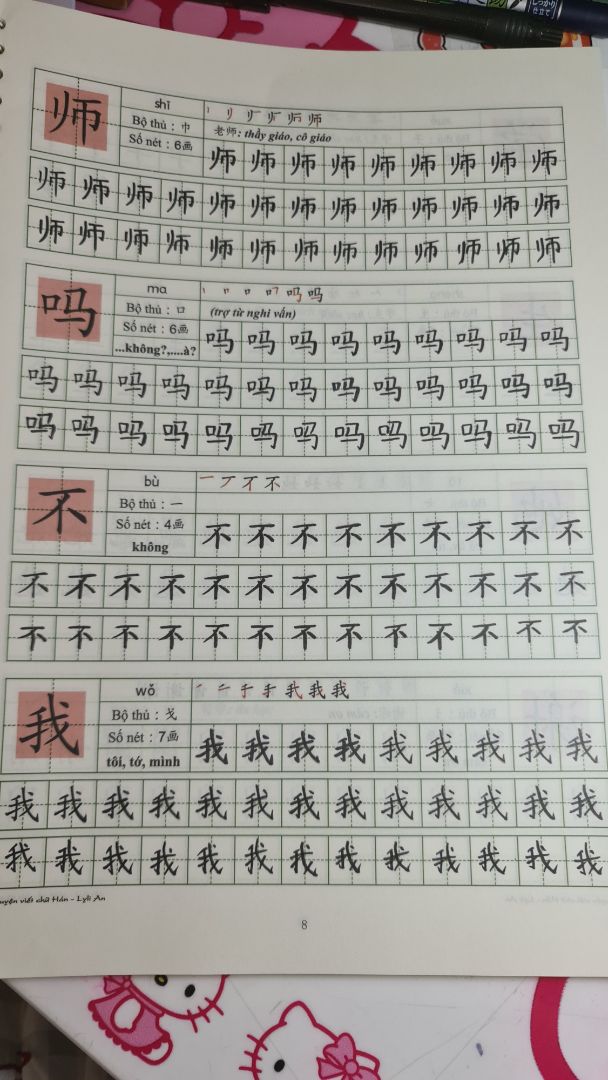 师 shī
Bộ thủ : 巾
Số nét : 6画
丨 刂 师
老师: thầy giáo, cô giáo
师 师 师 师 师 师 师 师 师
师 师 师 师 师 师 师 师 师 师 师 师 师
师 师 师 师 师 师 师 师 师 师 师 师 师
吗 ma
Bộ thủ : 口
Số nét : 6画
...không?,....à?
丨 口 吗 吗
(trợ từ nghi vấn)
吗 吗 吗 吗 吗 吗 吗 吗 吗
吗 吗 吗 吗 吗 吗 吗 吗 吗 吗 吗 吗 吗
吗 吗 吗 吗 吗 吗 吗 吗 吗 吗 吗 吗 吗
不 bù
Bộ thủ : 一
Số nét : 4画
không
一 丆 不 不
不 不 不 不 不 不 不 不 不
不 不 不 不 不 不 不 不 不 不 不 不 不
不 不 不 不 不 不 不 不 不 不 不 不 不
我 wǒ
Bộ thủ : 戈
Số nét : 7画
tôi, tớ, mình
丿 二 于 手 我 我 我
我 我 我 我 我 我 我 我 我
我 我 我 我 我 我 我 我 我 我 我 我 我
我 我 我 我 我 我 我 我 我 我 我 我 我
viết chữ Hán - Lyli An
8